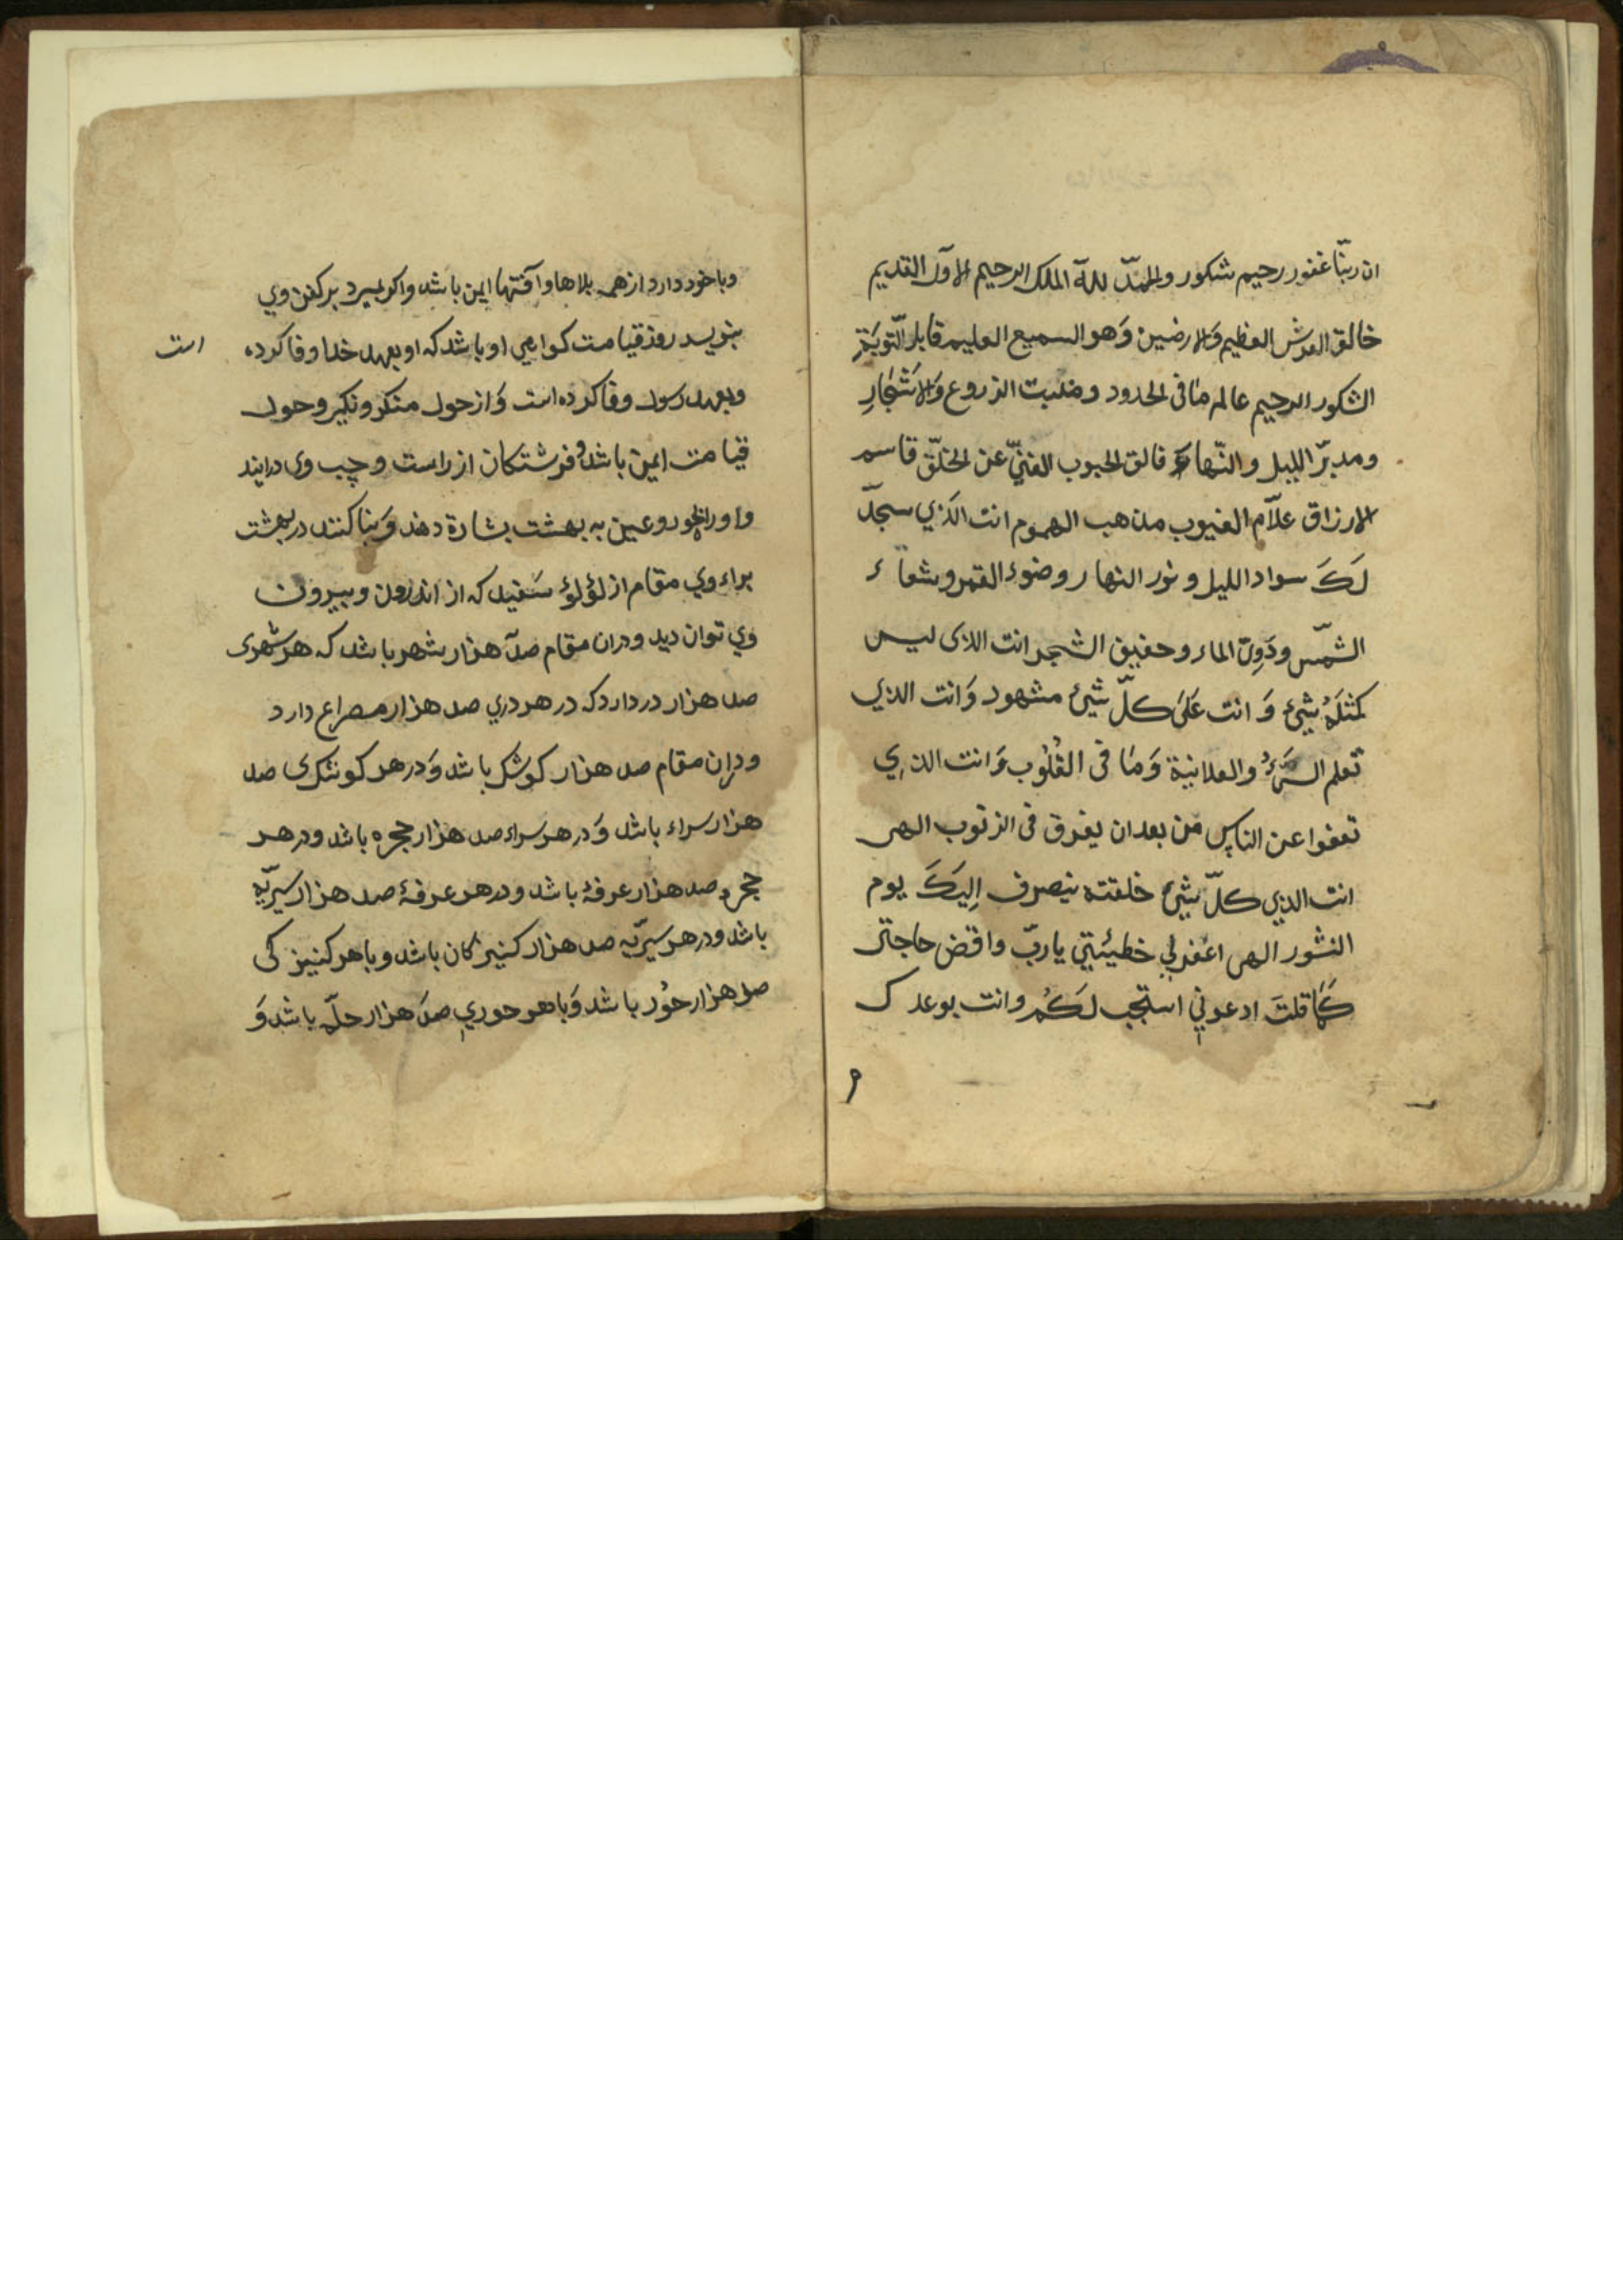 ان ربّنا غفور رحیم شکور والحمدّ للهّ الملک الرحیم الاوّل القدیم
خالق العرش العظیم وَالارضین وَهو السمیع العلیم قابل التّوبَة
الشکور الرحیم عالم مَا فی الحدود ومنبت الزروع وَالاشَجَارِ
ومدبّر اللیل والنّهار فالق الحبوب الغنیّ عن الخلّق قاسم
الارزاق علاّم الغیوب مذهب الهموم انت الَذي سجدّ
لَکَ سواد اللیل ونور النهار وضوء القمر وشعاء
الشمّس ودَوِیّ الماء وحفیف الشجر انت الذی لیس
کمثلَهُ شیء وَ انت عَلَی کلّ شیء مشهود وَانت الذي
تعلم السَرُّ والعلانیة وَمَا فی القُلوُب وَانت الذي
تعفوا عن الناس من بعد ان یغرق فی الذنوب الهی
انت الذي کلّ شیء خلقته ینصرف اِلیکَ یوم
النشور الهی اغفرلي خطیئتي یا ربّ واقض حاجتی
کمَا قلتَ ادعوني استجب لَکُم وانت بوعدک
و
وبا خود دارد از همه بلاها و آفتها ایمن باشد واکر بمیرد بر کفن وي
بنویسد روز قیامت کواهي او باشد که او بعهد خدا وفا کرده است
وبعهد رسول وفا کرده است وَاز حول منکر ونکیر وحول
قیامت ایمن باشد و فرشتکان از راست و چپ وی درایند
واورا بحور وعین به بهشت بشارة دهند وَبنا کنند در بهشت
براء وي مقام از لؤلؤ سَفید که از اندرون وبیرون
وي توان دید ودران مقام صدّ هزار شهر باشد که هر شهری
صد هزار در دارد که در هر دري صد هزار مصراع دارد
ودران مقام صد هزار کوشک باشد وَدر هر کوشکی صد
هزار سراء باشد وَدر هر سراء صد هزار حجره باشد ودر هر
حجره صد هزار عرفهٔ باشد ودر هر عرفهٔ صد هزار سریّه
باشد ودر هر سریّه صد هزار کنیزکان باشد وبا هر کنیزکی
صد هزار حوُر باشد وَبا هر حوري صدَ هزار حلّه باشد وَ